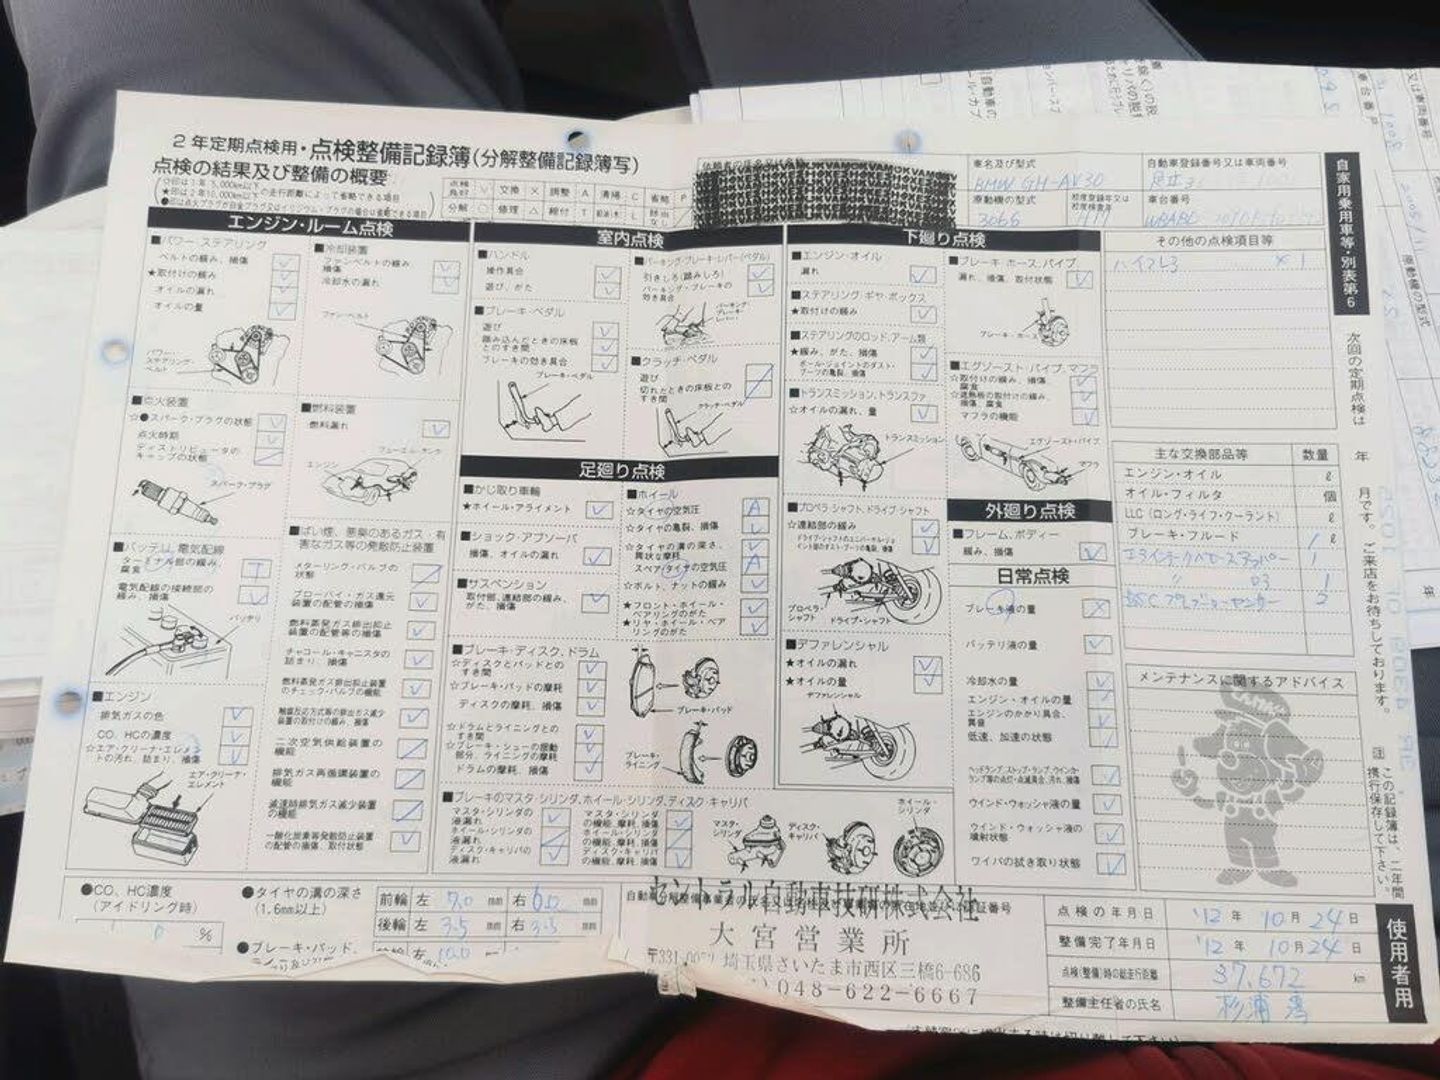 2年定期点検用・点検整備記録簿(分解整備記録簿写)
点検の結果及び整備の概要
点検良好 ∨ 交換 × 調整 A 清掃 C 省略 P
分解 ○ 修理 △ 締付 T 給油(水) L 該当なし /
車名及び型式
BMW GH-AV30
自動車登録番号又は車両番号
原動機の型式
306S
車台番号
自家用乗用車等・別表第6
エンジン・ルーム点検
■パワー・ステアリング
ベルトの緩み、損傷
★取付けの緩み
オイルの漏れ
オイルの量
パワー・ステアリング・ベルト
■冷却装置
ファンベルトの緩み、損傷
冷却水の漏れ
ファン・ベルト
■点火装置
☆●スパーク・プラグの状態
点火時期
ディストリビュータのキャップの状態
スパーク・プラグ
■燃料装置
燃料漏れ
フューエル・タンク
エンジン
■バッテリ、電気配線
ターミナル部の緩み、腐食
電気配線の接続部の緩み、損傷
バッテリ
■ばい煙、悪臭のあるガス・有害なガス等の発散防止装置
メターリング・バルブの状態
ブローバイ・ガス還元装置の配管の損傷
燃料蒸発ガス排出抑止装置の配管等の損傷
チャコール・キャニスタの詰まり、損傷
燃料蒸発ガス排出抑止装置のチェック・バルブの機能
触媒反応方式等の排出ガス減少装置の取付けの緩み、損傷
二次空気供給装置の機能
排気ガス再循環装置の機能
減速時排気ガス減少装置の機能
一酸化炭素等発散防止装置の配管の損傷、取付状態
■エンジン
排気ガスの色
CO、HCの濃度
☆エア・クリーナ・エレメントの汚れ、詰まり、損傷
エア・クリーナ・エレメント
室内点検
■ハンドル
操作具合
遊び、がた
■ブレーキ・ペダル
遊び
踏み込んだときの床板とのすき間
ブレーキの効き具合
ブレーキ・ペダル
■パーキング・ブレーキ・レバー(ペダル)
引きしろ(踏みしろ)
パーキング・ブレーキの効き具合
パーキング・ブレーキ・レバー
■クラッチ・ペダル
遊び
切れたときの床板とのすき間
クラッチ・ペダル
足廻り点検
■かじ取り車輪
★ホイール・アライメント
■ショック・アブソーバ
損傷、オイルの漏れ
■サスペンション
取付部、連結部の緩み、がた、損傷
■ホイール
☆タイヤの空気圧
☆タイヤの亀裂、損傷
☆タイヤの溝の深さ、異状な摩耗
スペア・タイヤの空気圧
☆ボルト、ナットの緩み
★フロント・ホイール・ベアリングのがた
★リヤ・ホイール・ベアリングのがた
■ブレーキ・ディスク、ドラム
☆ディスクとパッドとのすき間
☆ブレーキ・パッドの摩耗
ディスクの摩耗、損傷
☆ドラムとライニングとのすき間
☆ブレーキ・シューの摺動部分、ライニングの摩耗
ドラムの摩耗、損傷
ブレーキ・パッド
ブレーキ・ライニング
■ブレーキのマスタ・シリンダ、ホイール・シリンダ、ディスク・キャリパ
マスタ・シリンダの液漏れ
ホイール・シリンダの液漏れ
ディスク・キャリパの液漏れ
マスタ・シリンダの機能、摩耗、損傷
ホイール・シリンダの機能、摩耗、損傷
ディスク・キャリパの機能、摩耗、損傷
マスタ・シリンダ
ディスク・キャリパ
ホイール・シリンダ
下廻り点検
■エンジン・オイル
漏れ
■ステアリング・ギヤ・ボックス
★取付けの緩み
■ステアリングのロッド、アーム類
★緩み、がた、損傷
ボール・ジョイントのダスト・ブーツの亀裂、損傷
■トランスミッション、トランスファ
☆オイルの漏れ、量
トランスミッション
■プロペラ・シャフト、ドライブ・シャフト
☆連結部の緩み
ドライブ・シャフトのユニバーサル・ジョイント部のダスト・ブーツの亀裂、損傷
プロペラ・シャフト
ドライブ・シャフト
■デファレンシャル
★オイルの漏れ
★オイルの量
デファレンシャル
■ブレーキ・ホース、パイプ
漏れ、損傷、取付状態
ブレーキ・ホース
■エグゾースト・パイプ、マフラ
☆取付けの緩み、損傷、腐食
☆遮熱板の取付けの緩み、損傷、腐食
マフラの機能
エグゾースト・パイプ
マフラ
外廻り点検
■フレーム、ボディー
緩み、損傷
日常点検
ブレーキ液の量
バッテリ液の量
冷却水の量
エンジン・オイルの量
エンジンのかかり具合、異音
低速、加速の状態
ヘッドランプ、ストップ・ランプ、ウインカ・ランプ等の点灯・点滅具合、汚れ、損傷
ウインド・ウォッシャ液の量
ウインド・ウォッシャ液の噴射状態
ワイパの拭き取り状態
その他の点検項目等
ハイマウント ×1
主な交換部品等 数量
エンジン・オイル ℓ
オイル・フィルタ 個
LLC(ロング・ライフ・クーラント) ℓ
ブレーキ・フルード 1 ℓ
メンテナンスに関するアドバイス
次回の定期点検は 年 月です。ご来店をお待ちしております。
注 この記録簿は、二年間携行保存して下さい。
使用者用
●CO、HC濃度
(アイドリング時)
0 %
●タイヤの溝の深さ
(1.6mm以上)
前輪 左 7.0 mm 右 6.0 mm
後輪 左 3.5 mm 右 3.5
●ブレーキ・パッド、
左 10.0
セントラル自動車技研株式会社
大宮営業所
埼玉県さいたま市西区三橋6-686
048-622-6667
点検の年月日 '12年 10月 24日
整備完了年月日 '12年 10月 24日
点検(整備)時の総走行距離 37,672 km
整備主任者の氏名